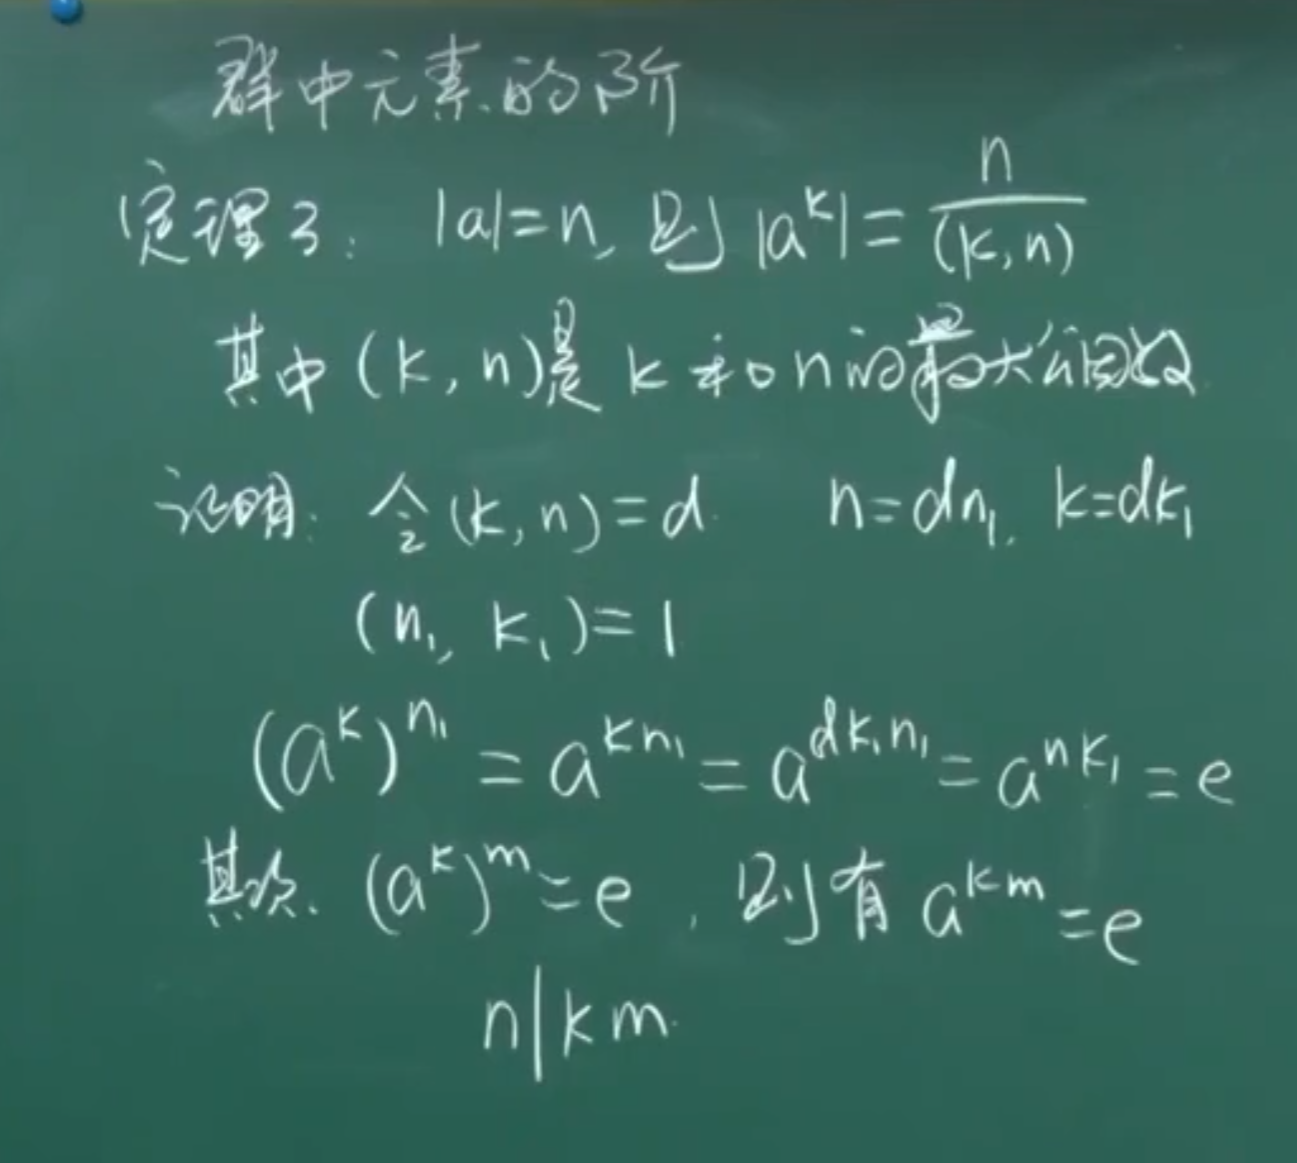 群中元素的阶
定理3: |a|=n, 则 |a^k|= n/(k,n)
其中(k,n)是 k 和 n 的最大公因数
证明: 令(k,n)=d. n=dn₁, k=dk₁
(n₁, k₁)=1
(a^k)^{n₁} = a^{kn₁} = a^{dk₁n₁} = a^{nk₁} = e
其次. (a^k)^m=e, 则有 a^{km}=e
n|km.